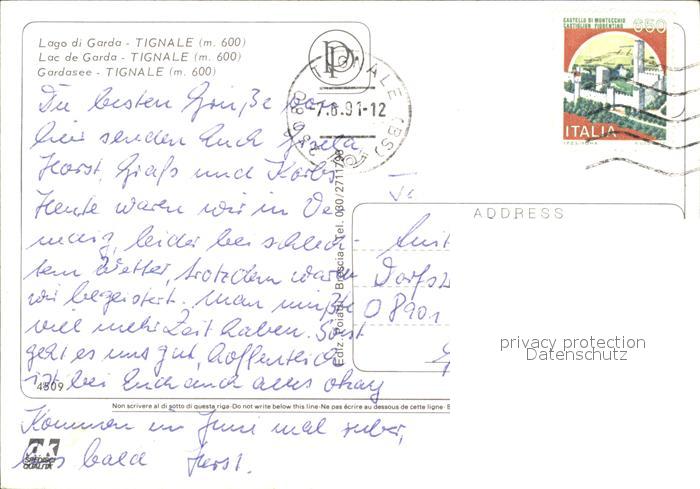 Lago di Garda - TIGNALE (m. 600)
Lac de Garda - TIGNALE (m. 600)
Gardasee - TIGNALE (m. 600)
CASTELLO DI MONTECCHIO
CASTIGLION FIORENTINO
650
ITALIA
TIGNALE (BS)
-7.8.91-12
Die besten Grüße von
hier senden Euch Gisela,
Horst, und
Heute waren wir in Ve-
nedig, leider bei schlech-
tem Wetter, trotzdem waren
wir begeistert. Man müßte
viel mehr Zeit haben. Sonst
geht es uns gut, hoffentlich
ist bei Euch auch alles okay
Kommen im Juni mal rüber,
bis bald Horst.
ADDRESS
Dorfst
O 8901
privacy protection
Datenschutz
Brescia - Tel. 030/2711796
4809
Non scrivere al di sotto di questa riga - Do not write below this line - Ne pas écrire au dessous de cette ligne -